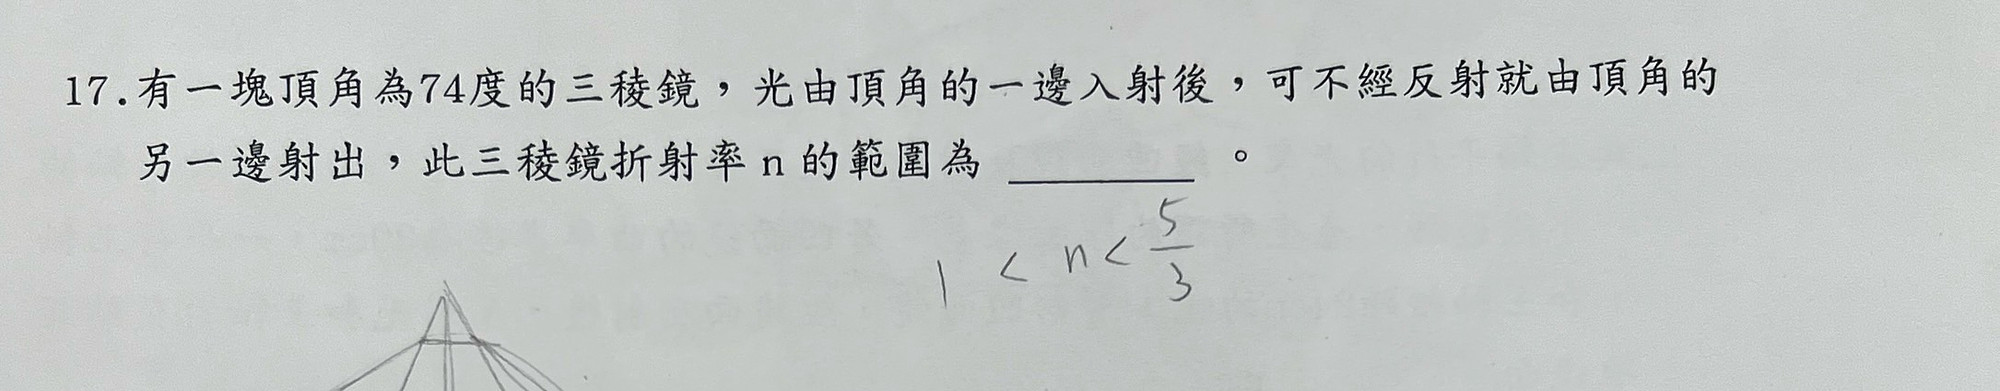 17.有一塊頂角為74度的三稜鏡，光由頂角的一邊入射後，可不經反射就由頂角的
另一邊射出，此三稜鏡折射率n的範圍為 ________ 。
1 < n < 5/3